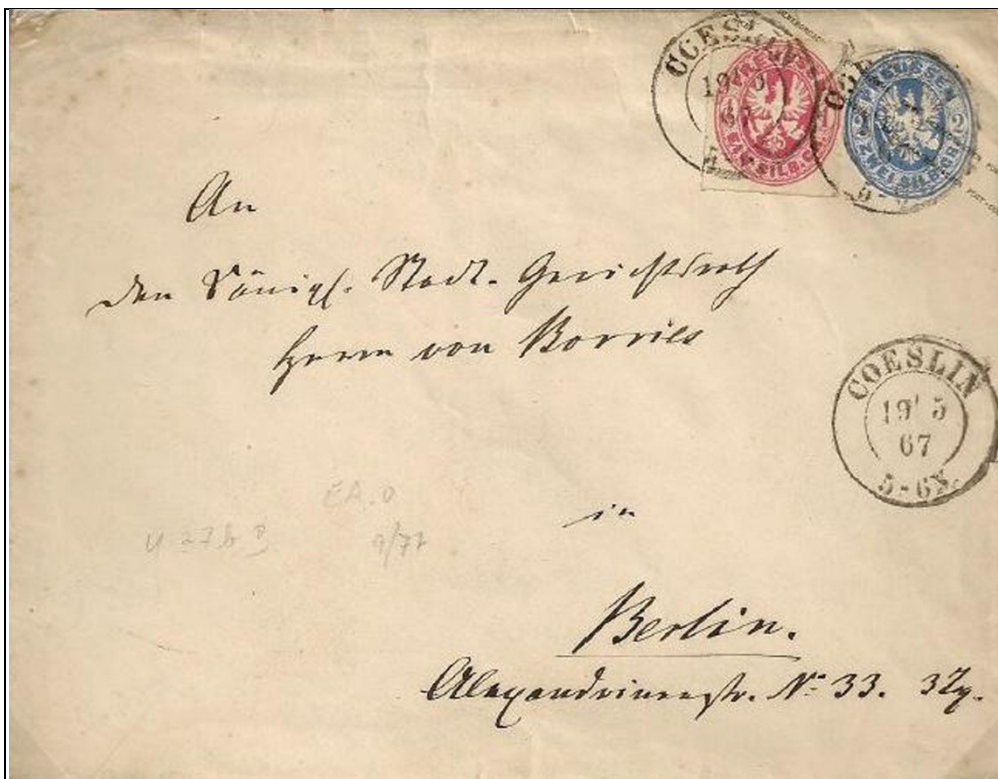 COESLIN
19 5
67
PREUSSEN
EIN SILB.GR.
2 PREUSSEN 2
ZWEI SILB.GR.
An
den Königl. Stadt-Gerichtsrath
Herrn von Borries
COESLIN
19 5
67
5-6N.
in
Berlin.
Alexandrinenstr. No 33.